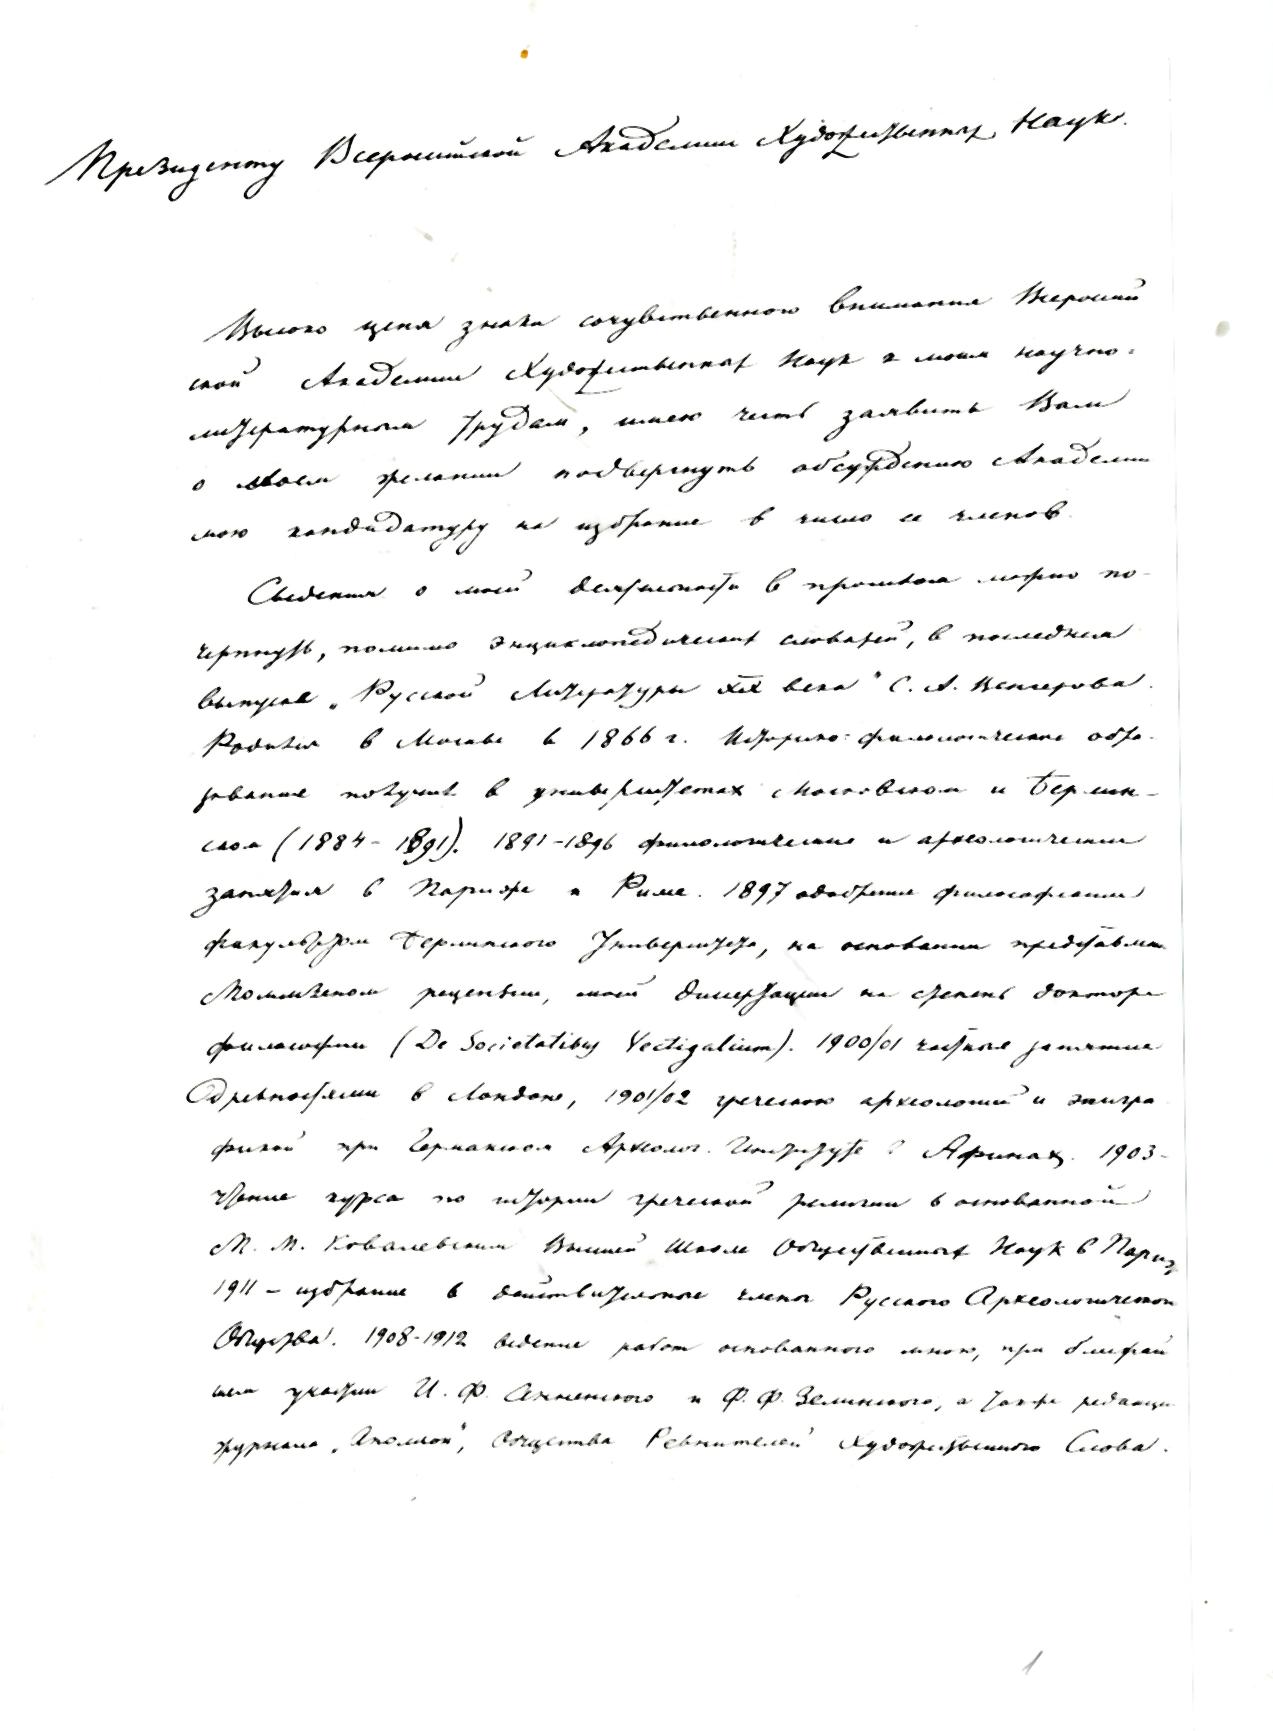 Президенту Всероссийской Академии Художественных Наук.
Высоко ценя знаки сочувственного внимания Всероссий
ской Академии Художественных Наук к моим научно-
литературным трудам, имею честь заявить Вам
о моем желании подвергнуть обсуждению Академии
мою кандидатуру на избрание в число ее членов.
Сведения о моей деятельности в прошлом можно по-
черпнуть, помимо энциклопедических словарей, в последнем
выпуске „Русской Литературы XIX века" С. А. Венгерова.
Родился в Москве в 1866 г. Историко-филологическое обра-
зование получил в университетах Московском и Берлин-
ском (1884-1891). 1891-1896 филологические и археологические
занятия в Париже и Риме. 1897 одобрение философским
факультетом Берлинского Университета, на основании представлен
Моммзеном рецензии, моей диссертации на степень доктора
философии (De Societatibus Vectigalium). 1900/01 частные занятия
древностями в Лондоне, 1901/02 греческою археологией и эпигра
фикой при Германском Археолог. Институте в Афинах. 1903-
чтение курса по истории греческой религии в основанной
М. М. Ковалевским Высшей Школе Общественных Наук в Париж
1911 - избрание в действительные члены Русского Археологическою
Общества. 1908-1912 ведение работ основанного мною, при ближай
шем участии И. Ф. Анненского и Ф. Ф. Зелинского, а также редакци
журнала „Аполлон", Общества Ревнителей Художественного Слова.
1